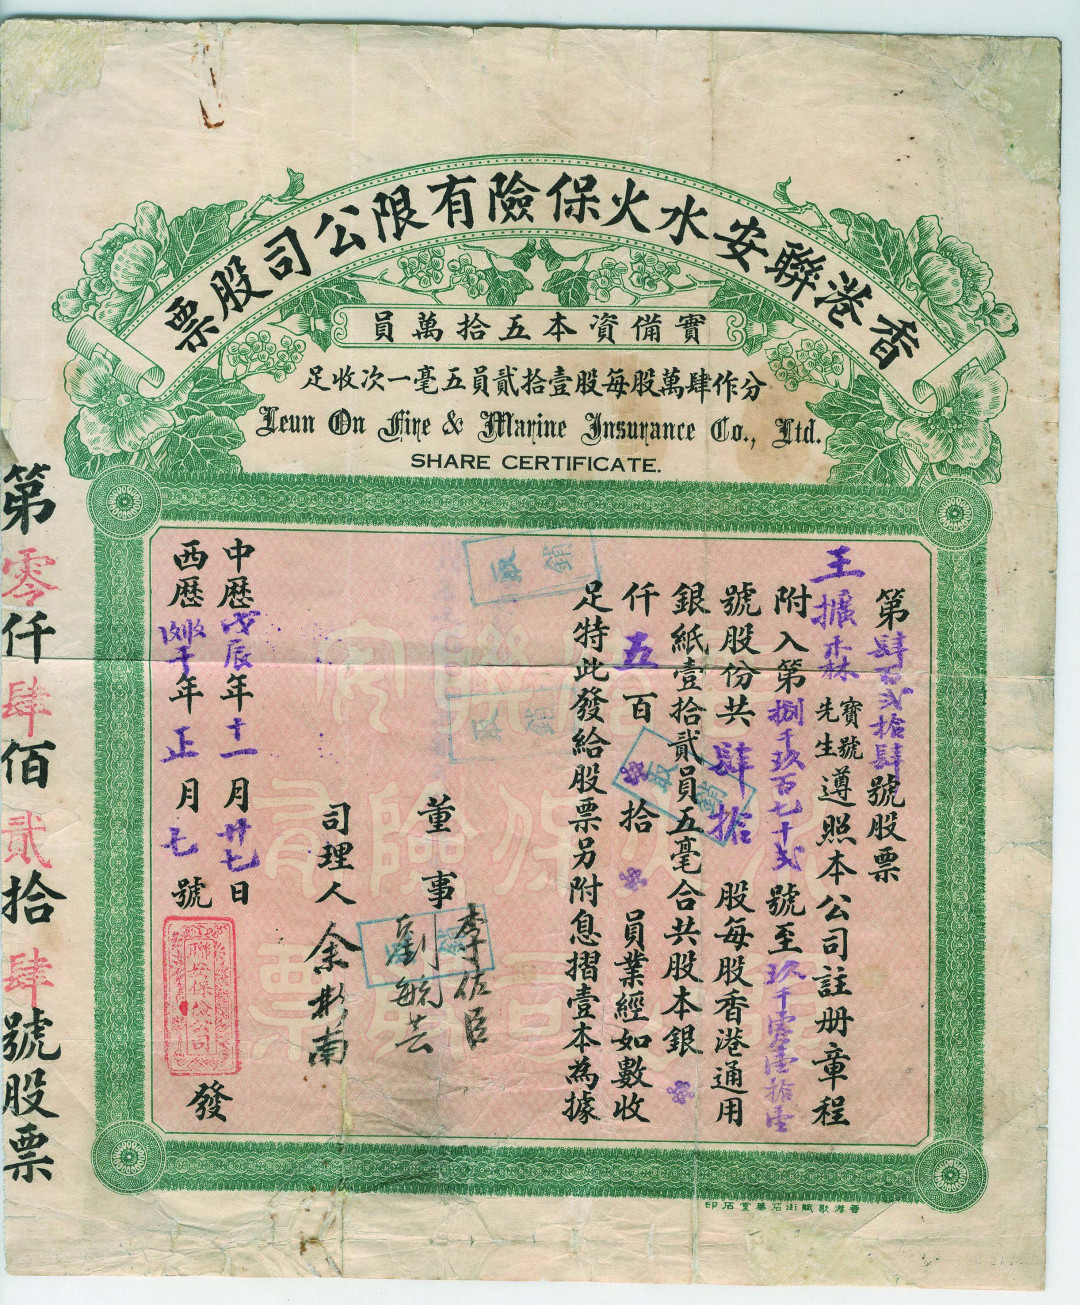 香港聯安水火保險有限公司股票
實備資本五拾萬員
分作肆萬股每股壹拾貳員五毫一次收足
Leun On Fire & Marine Insurance Co., Ltd.
SHARE CERTIFICATE.
第肆百貳拾肆號股票
王擴森寶號先生遵照本公司註册章程
附入第捌千玖百七十弍號至玖千零壹拾壹
號股份共肆拾股每股香港通用
銀紙壹拾貳員五毫合共股本銀
仟五百拾員業經如數收
足特此發給股票另附息摺壹本為據
董事
李佑臣
劉毓芸
司理人
余彬南
中歷戊辰年十一月廿七日
西歷年正月七號
發
聯安保險公司
取銷
取銷
取銷
取銷
第零仟肆佰貳拾肆號股票